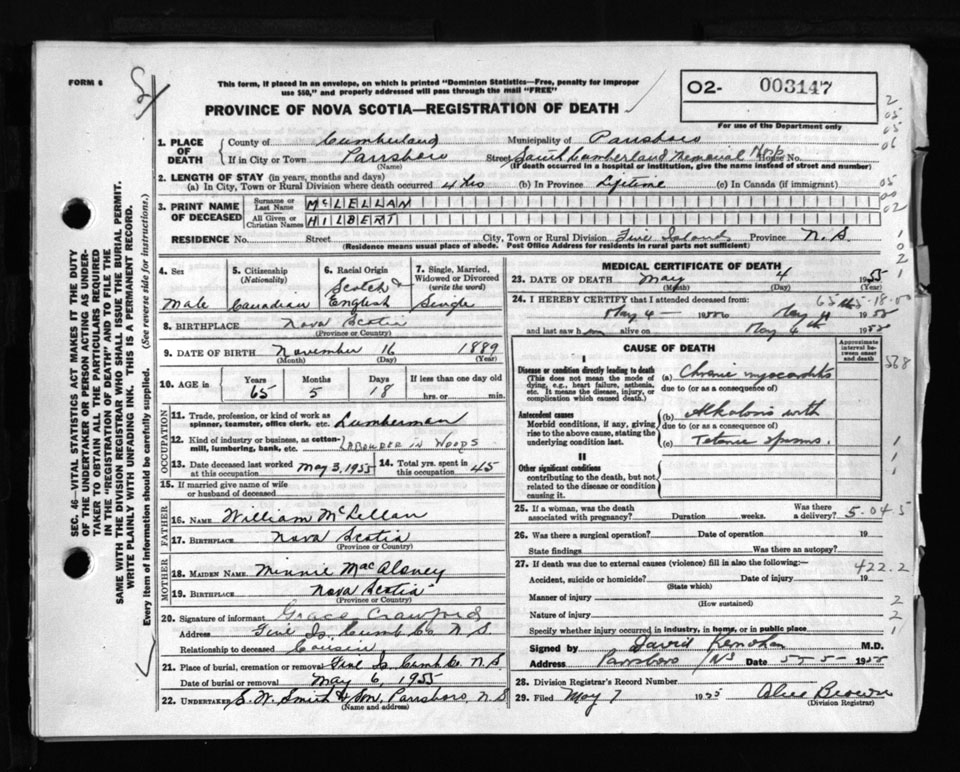 FORM 6
This form, if placed in an envelope, on which is printed "Dominion Statistics—Free, penalty for improper
use $50," and properly addressed will pass through the mail "FREE"
PROVINCE OF NOVA SCOTIA—REGISTRATION OF DEATH
02- 003147
For use of the Department only
SEC. 46—VITAL STATISTICS ACT MAKES IT THE DUTY
OF THE UNDERTAKER OR PERSON ACTING AS UNDER-
TAKER TO OBTAIN ALL THE PARTICULARS REQUIRED
IN THE "REGISTRATION OF DEATH" AND TO FILE THE
SAME WITH THE DIVISION REGISTRAR WHO SHALL ISSUE THE BURIAL PERMIT.
WRITE PLAINLY WITH UNFADING INK. THIS IS A PERMANENT RECORD.
Every item of information should be carefully supplied. (See reverse side for instructions.)
1. PLACE OF DEATH
County of Cumberland Municipality of Parrsboro
If in City or Town Parrsboro Street South Cumberland Memorial Hosp House No.
(Name) (If death occurred in a hospital or institution, give the name instead of street and number)
2. LENGTH OF STAY (in years, months and days)
(a) In City, Town or Rural Division where death occurred 4 hrs (b) In Province Lifetime (c) In Canada (if immigrant)
3. PRINT NAME OF DECEASED
Surname or Last Name McLELLAN
All Given or Christian Names HILBERT
RESIDENCE No. Street City, Town or Rural Division Five Islands Province N.S.
(Residence means usual place of abode. Post Office Address for residents in rural parts not sufficient)
4. Sex Male
5. Citizenship (Nationality) Canadian
6. Racial Origin Scotch & English
7. Single, Married, Widowed or Divorced (write the word) Single
8. BIRTHPLACE Nova Scotia
(Province or Country)
9. DATE OF BIRTH November 16 1889
(Month) (Day) (Year)
10. AGE Years 65 Months 5 Days 18 If less than one day old hrs. or min.
OCCUPATION
11. Trade, profession, or kind of work as spinner, teamster, office clerk, etc. Lumberman
12. Kind of industry or business, as cotton-mill, lumbering, bank, etc. LABOURER IN WOODS
13. Date deceased last worked at this occupation May 3, 1955 14. Total yrs. spent in this occupation 45
15. If married give name of wife or husband of deceased
FATHER
16. NAME William McLellan
17. BIRTHPLACE Nova Scotia
(Province or Country)
MOTHER
18. MAIDEN NAME Minnie MacAloney
19. BIRTHPLACE Nova Scotia
(Province or Country)
20. Signature of informant Grace Crawford
Address Five Is. Cumb Co N.S.
Relationship to deceased Cousin
21. Place of burial, cremation or removal Five Is. Cumb Co. N.S.
Date of burial or removal May 6, 1955
22. UNDERTAKER E. W. Smith & Son, Parrsboro, N.S
(Name and address)
MEDICAL CERTIFICATE OF DEATH
23. DATE OF DEATH May 4 1955
(Month) (Day)
24. I HEREBY CERTIFY that I attended deceased from
May 4 1955 to May 4 1955
and last saw him alive on May 4th 1955
CAUSE OF DEATH
Approximate interval between onset and death
I
Disease or condition directly leading to death
(This does not mean the mode of dying, e.g., heart failure, asthenia, etc. It means the disease, injury, or complication which caused death.)
(a) Chronic myocarditis
due to (or as a consequence of)
Antecedent causes
Morbid conditions, if any, giving rise to the above cause, stating the underlying condition last.
(b) Alkalosis with
due to (or as a consequence of)
(c) Tetanic spasms.
II
Other significant conditions
contributing to the death, but not related to the disease or condition causing it.
25. If a woman, was the death associated with pregnancy? Duration weeks. Was there a delivery?
5-04 5
26. Was there a surgical operation? Date of operation 19
State findings Was there an autopsy?
27. If death was due to external causes (violence) fill in also the following:—
422.2
Accident, suicide or homicide? Date of injury 19
(State which)
Manner of injury
(How sustained)
Nature of injury
Specify whether injury occurred in industry, in home, or in public place
Signed by David M.D.
Address Parrsboro NS Date 5-5-1955
28. Division Registrar's Record Number
29. Filed May 7 1955 Olive Brown
(Division Registrar)